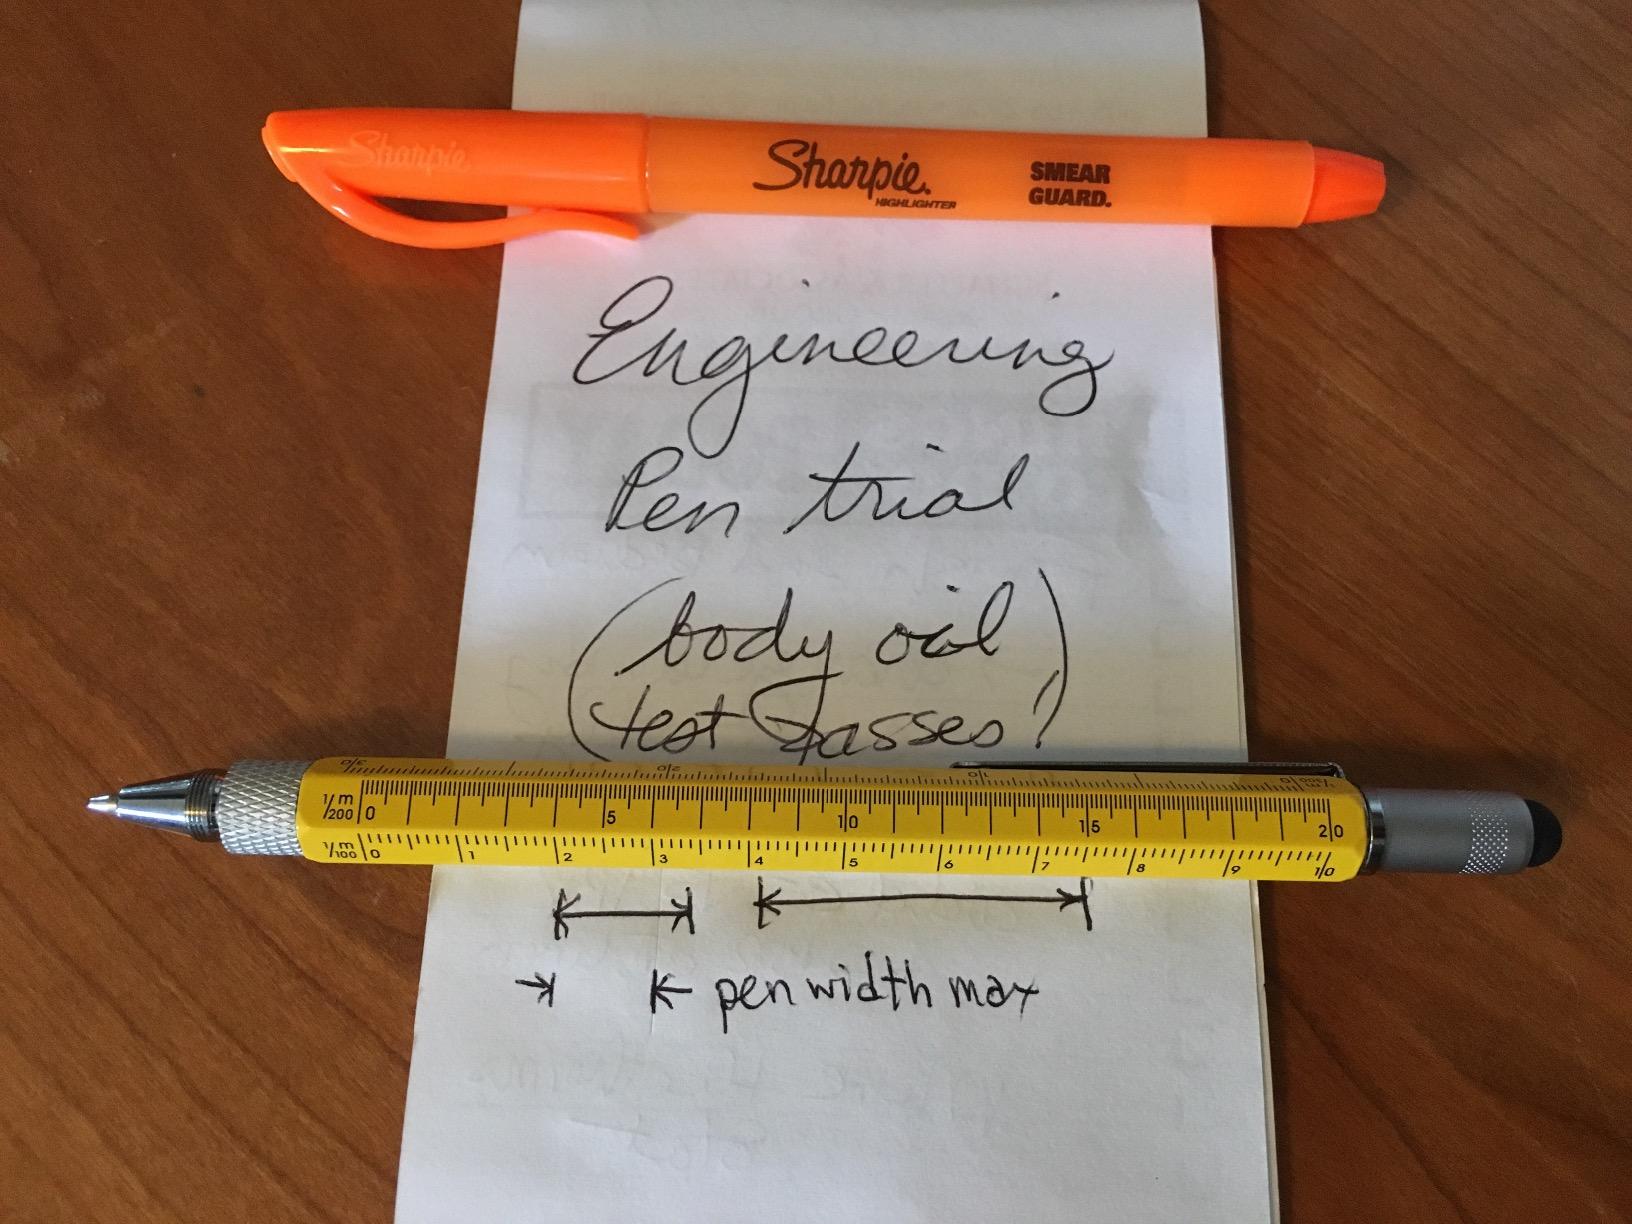 Sharpie
Sharpie.
HIGHLIGHTER
SMEAR
GUARD.
Engineering
Pen trial
(body oil
test passes!)
1/m
200
0 5 10 15 20
1/m
100
0 1 2 3 4 5 6 7 8 9 10
30 20 10 0
1/m
300
pen width max